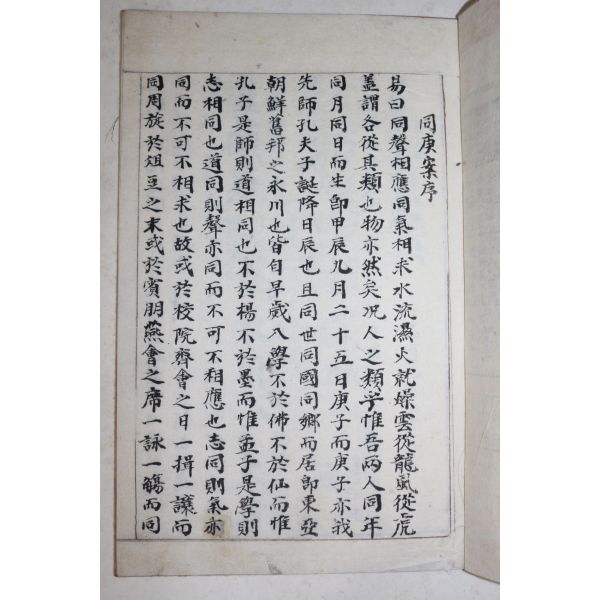 同庚案序
易曰同聲相應同氣相求水流濕火就燥雲從龍風從虎
盖謂各從其類也物亦然矣况人之類乎惟吾兩人同年
同月同日而生卽甲辰九月二十五日庚子而庚子亦我
先師孔夫子誕降日辰也且同世同國同鄕而居卽東亞
朝鮮舊邦之永川也皆自早歲入學不於佛不於仙而惟
孔子是師則道相同也不於楊不於墨而惟孟子是學則
志相同也道同則聲亦同而不可不相應也志同則氣亦
同而不可不相求也故或於校院齊會之日一揖一讓而
同周旋於俎豆之末或於賓朋燕會之席一詠一觴而同